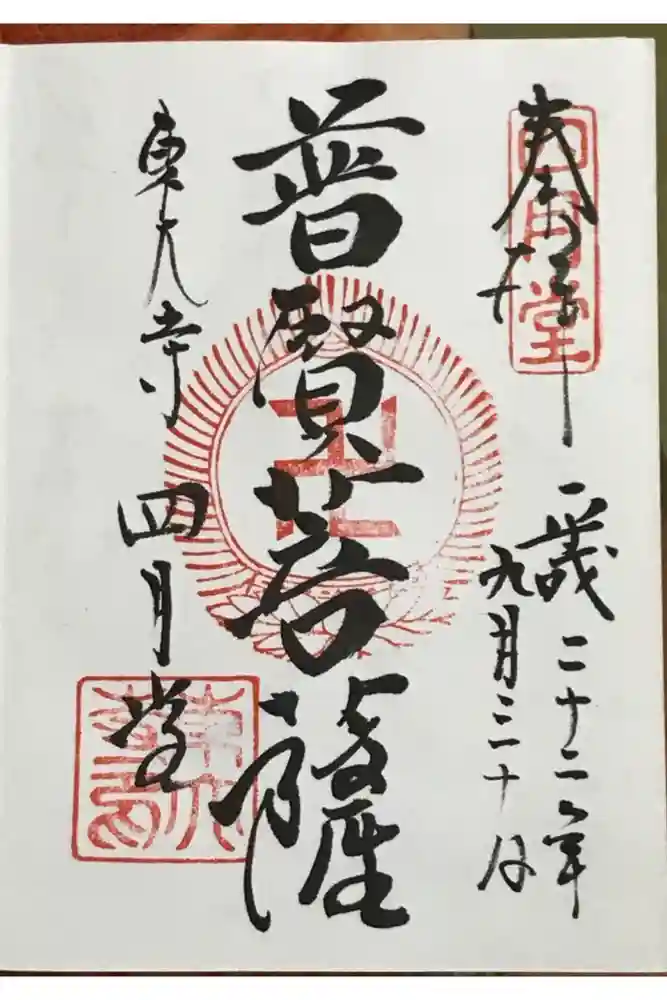 奉拝
四月堂
平成二十二年
九月三十日
普賢菩薩
卍
東大寺 四月堂